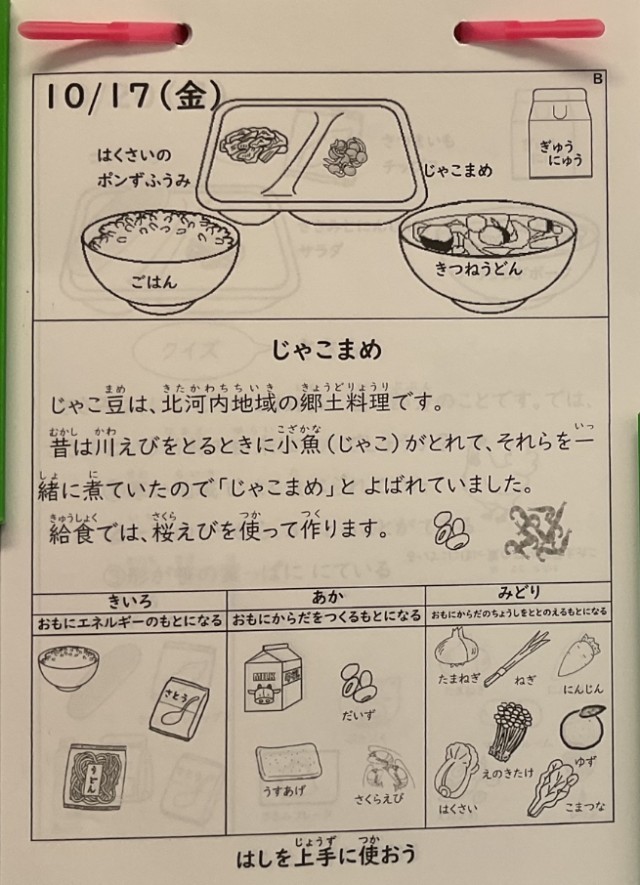 B
10/17(金)
はくさいの
ポンずふうみ
じゃこまめ
ぎゅう
にゅう
ごはん
きつねうどん
じゃこまめ
じゃこ豆は、北河内地域の郷土料理です。
昔は川えびをとるときに小魚(じゃこ)がとれて、それらを一
緒に煮ていたので「じゃこまめ」と よばれていました。
給食では、桜えびを使って作ります。
きいろ
おもにエネルギーのもとになる
さとう
うどん
あか
おもにからだをつくるもとになる
MILK
だいず
うすあげ
さくらえび
みどり
おもにからだのちょうしをととのえるもとになる
たまねぎ
ねぎ
にんじん
えのきたけ
ゆず
はくさい
こまつな
はしを上手に使おう